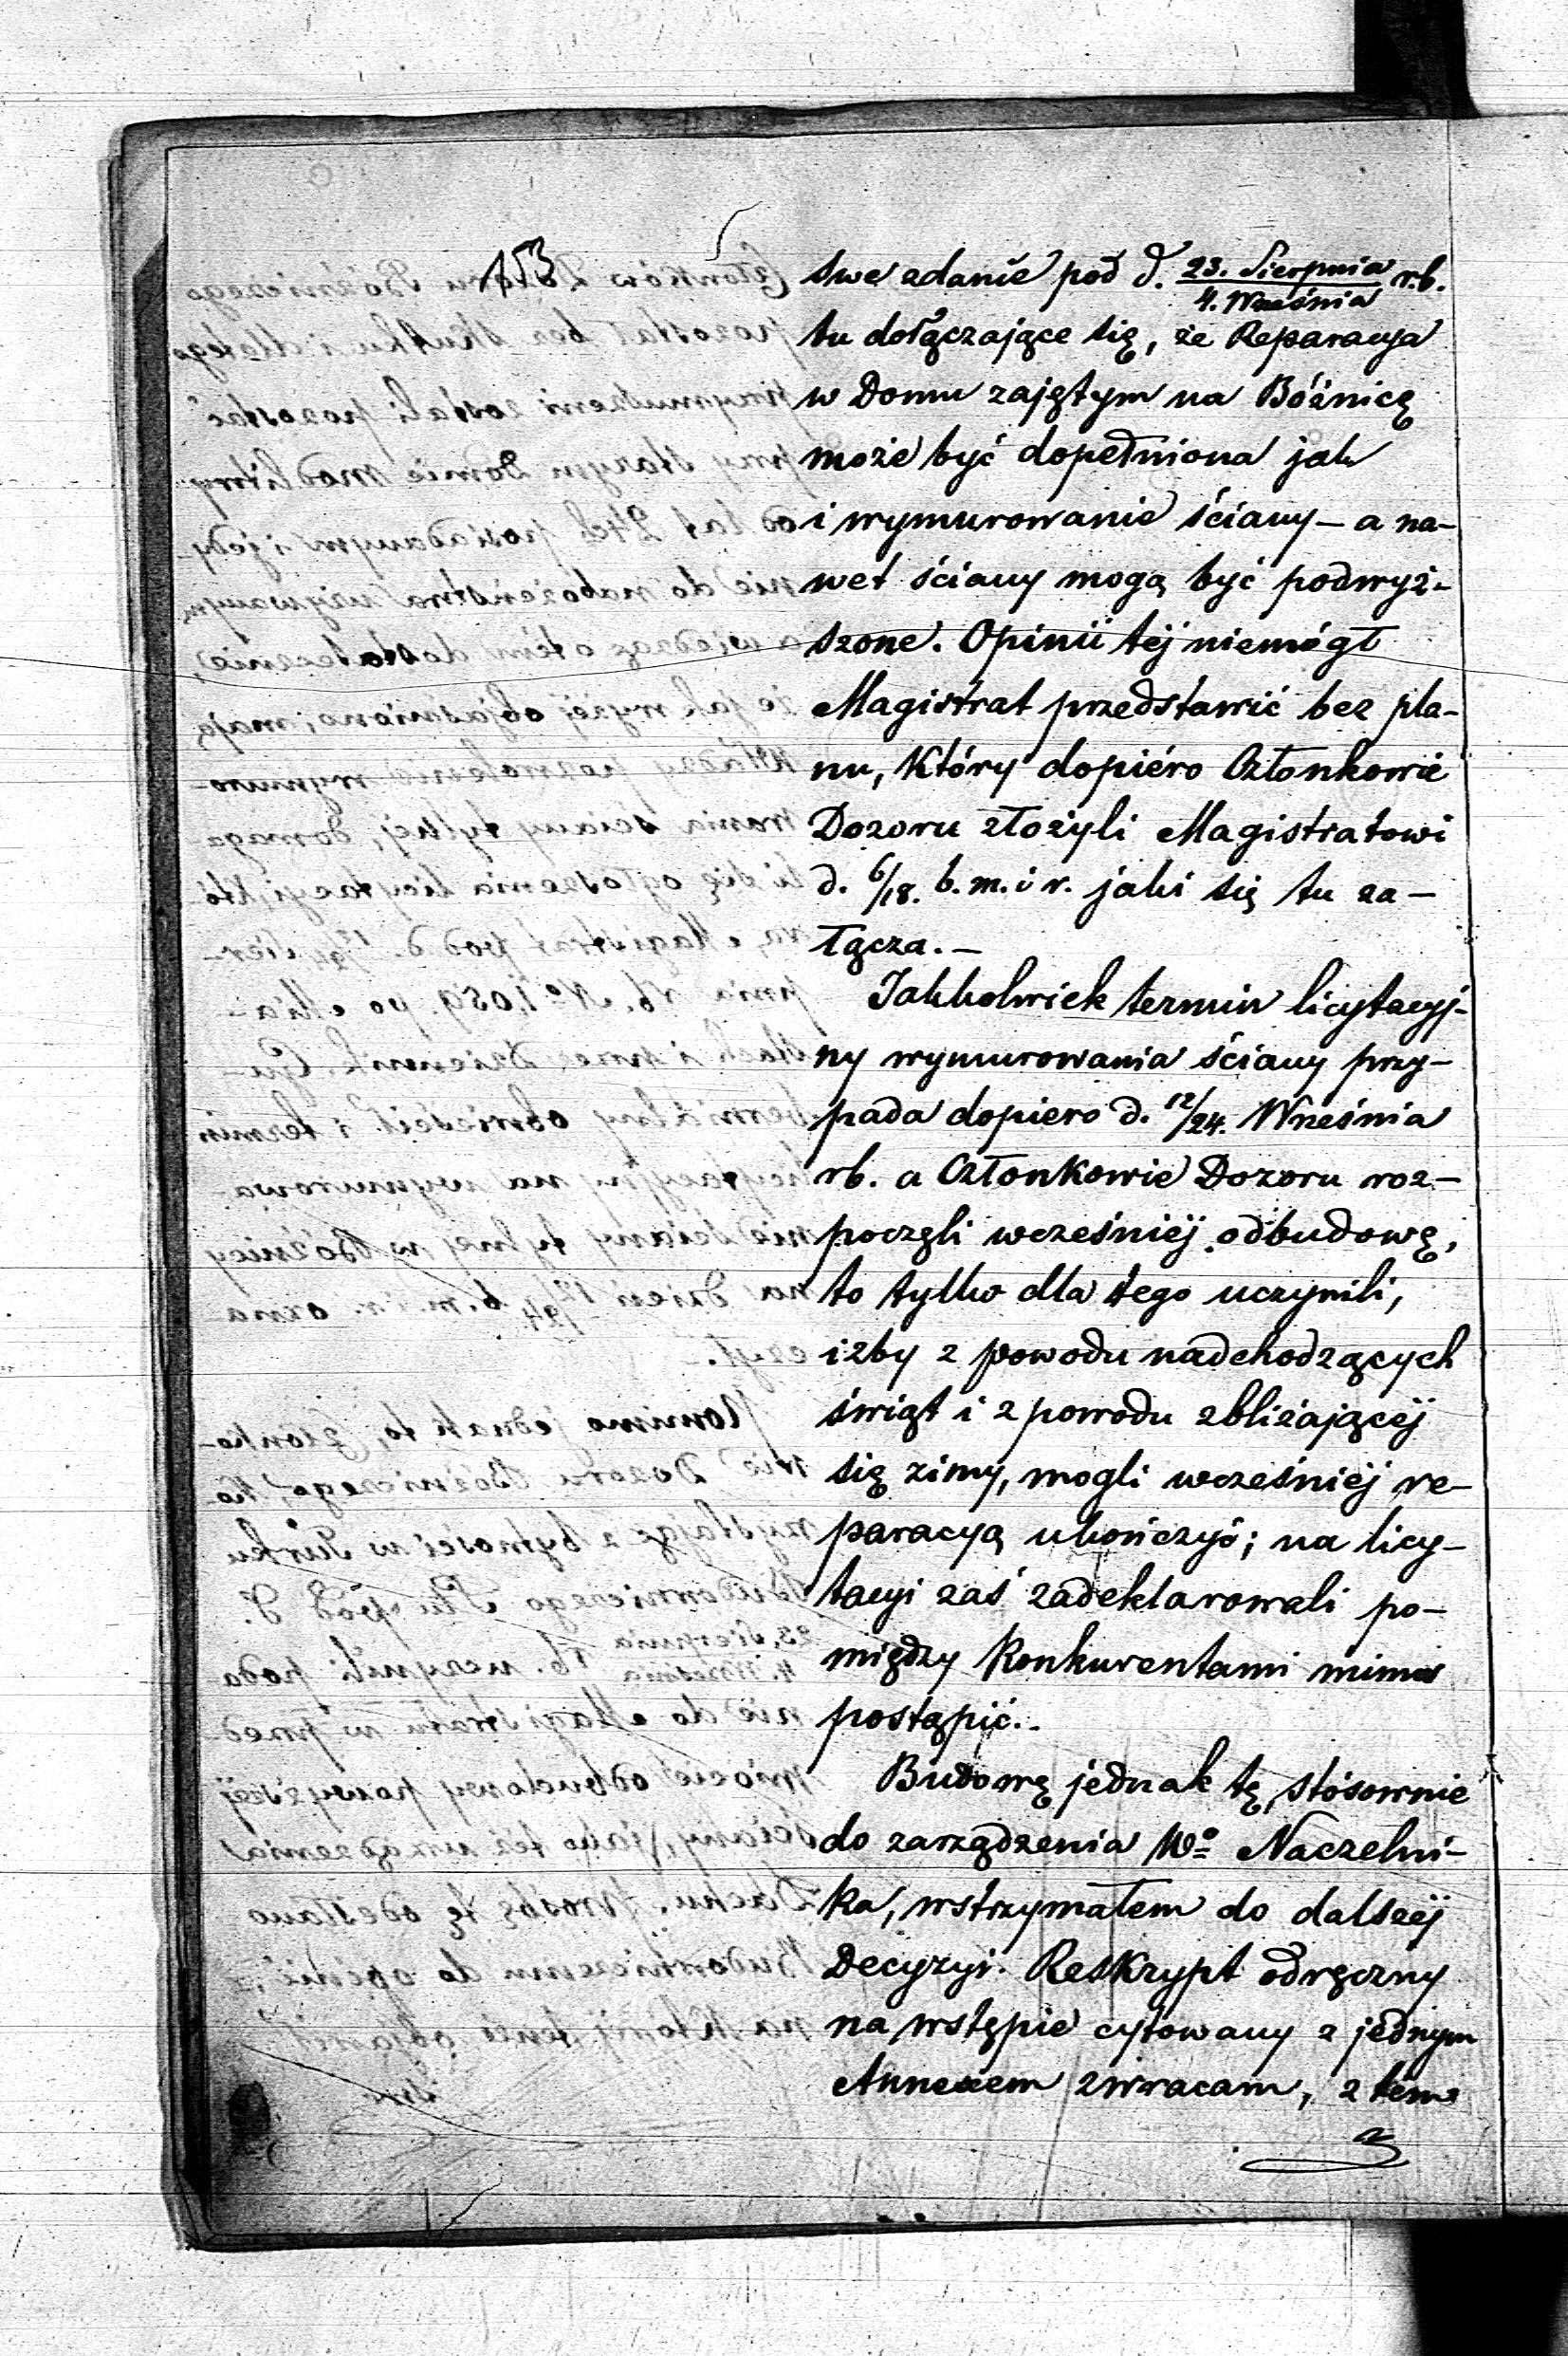 153
swe zdanie pod d. 23. Sierpnia/4. Września r.b.
tu dołączające się, że Reparacya
w Domu zajętym na Bóżnicę
może być dopełniona jak
i wymurowanie ściany – a na-
wet ściany mogą być podwyż-
szone. Opinii tej niemógł
Magistrat przedstawić bez pla-
nu, który dopiéro Członkowie
Dozoru złożyli Magistratowi
d. 6/18. b.m. i r. jaki się tu za-
łącza. –
Jakkolwiek termin licytacyj-
ny wymurowania ściany przy-
pada dopiero d. 12/24. Września
rb. a Członkowie Dozoru roz-
poczęli wcześniéj odbudowę,
to tylko dla tego uczynili,
iżby z powodu nadchodzących
świąt i z powodu zbliżającéj
się zimy, mogli wcześniéj re-
paracyą ukończyć; na licy-
tacyi zaś zadeklarowali po-
między Konkurentami mimo
postąpić. –
Budowę jednak tę, stósownie
do zarządzenia Wo Naczelni-
ka, wstrzymałem do dalszéj
Decyzyi. Reskrypt odręczny
na wstępie cytowany z jednym
Annexem zwracam, z tém